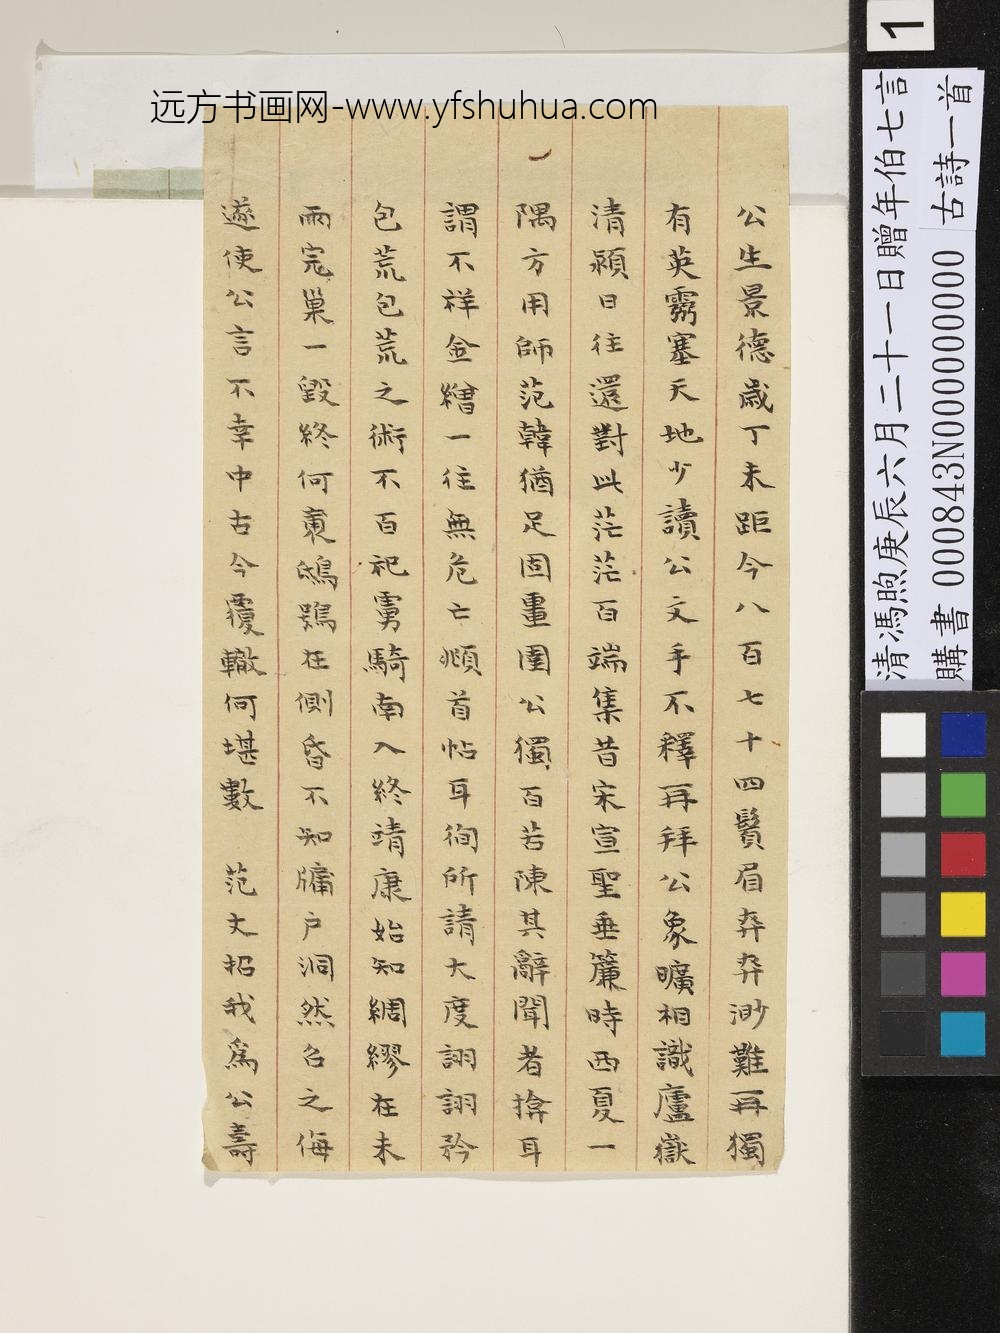 远方书画网-www.yfshuhua.com
1
清馮煦庚辰六月二十一日贈年伯七言
古詩一首
購書 000843N000000000
公生景德歲丁未距今八百七十四鬢眉弈弈渺難再獨
有英靈塞天地少讀公文手不釋再拜公象曠相識廬嶽
清潁日往還對此茫茫百端集昔宋宣聖垂簾時西夏一
隅方用師范韓猶足固重圉公獨百苦陳其辭聞者揜耳
謂不祥金繒一往無危亡頫首帖耳徇所請大度詡詡矜
包荒包荒之術不百祀虜騎南入終靖康始知綢繆在未
雨完巢一毀終何鴟鴞在側昏不知牖戶洞然召之侮
遂使公言不幸中古今覆轍何堪數 范丈招我爲公壽